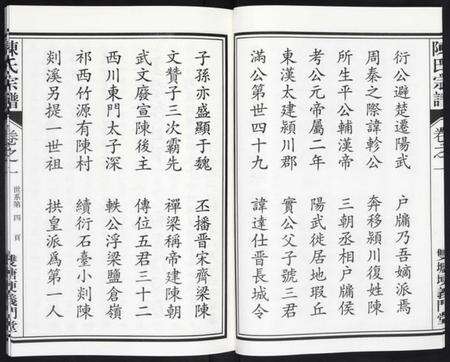 陳氏宗譜
卷之一
義門堂
衍公避楚遷陽武 戶牖乃吾嫡派焉
周秦之際諱軫公 奔移潁川復姓陳
所生平公輔漢帝 三朝丞相戶牖侯
考公元帝屬二年 陽武徙居地瑕丘
東漢太建潁川郡 實公父子號三君
滿公第世四十九 諱達仕晋長城令
子孫亦盛顯于魏 丕播晋宋齊梁陳
文贊子三次霸先 禪梁稱帝建陳朝
武文廢宣陳後主 傳位五君三十二
西川東門太子深 軼公浮梁鹽倉嶺
祁西竹源有陳村 續衍石臺小剡陳
剡溪另提一世祖 拱皇派爲第一人
陳氏宗譜
卷之一
世系第 四 頁
雙塘義門堂